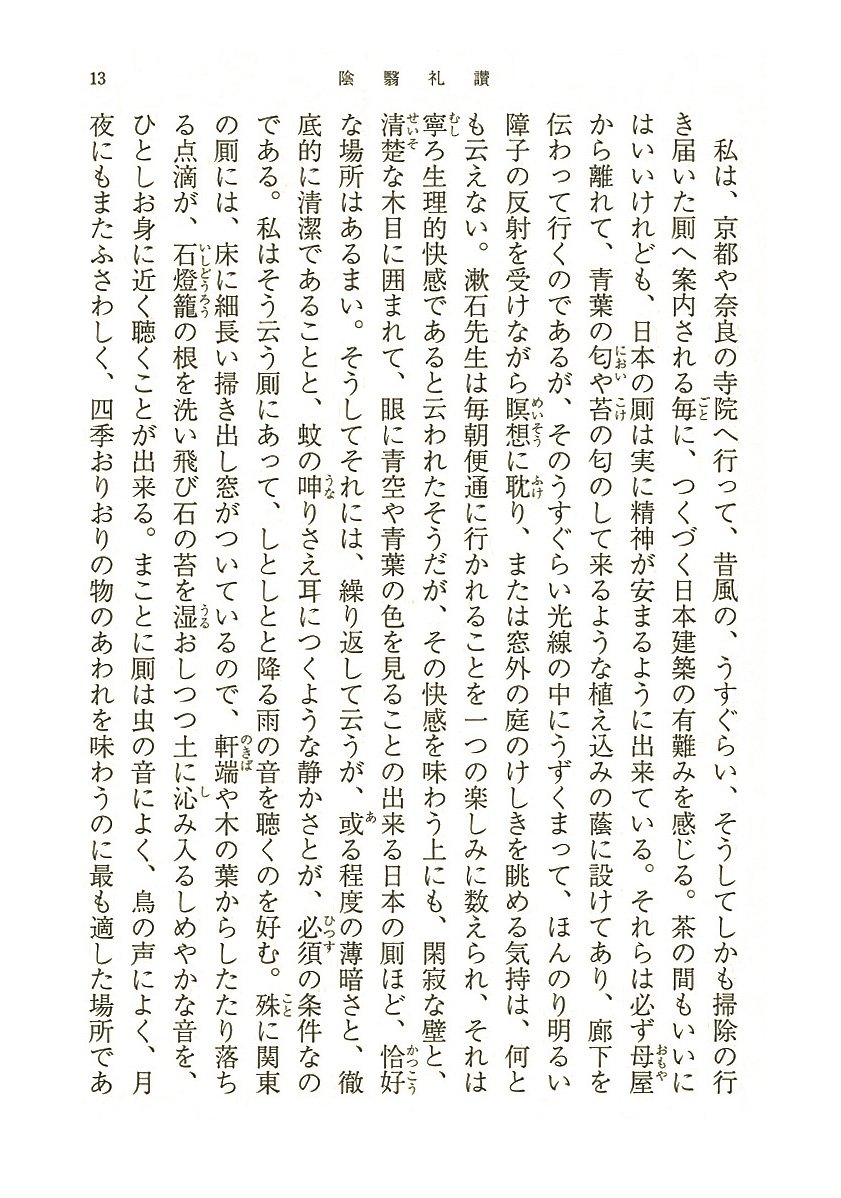 13
陰翳礼讃
私は、京都や奈良の寺院へ行って、昔風の、うすぐらい、そうしてしかも掃除の行
き届いた厠へ案内される毎に、つくづく日本建築の有難みを感じる。茶の間もいいに
はいいけれども、日本の厠は実に精神が安まるように出来ている。それらは必ず母屋
から離れて、青葉の匂や苔の匂のして来るような植え込みの蔭に設けてあり、廊下を
伝わって行くのであるが、そのうすぐらい光線の中にうずくまって、ほんのり明るい
障子の反射を受けながら瞑想に耽り、または窓外の庭のけしきを眺める気持は、何と
も云えない。漱石先生は毎朝便通に行かれることを一つの楽しみに数えられ、それは
寧ろ生理的快感であると云われたそうだが、その快感を味わう上にも、閑寂な壁と、
清楚な木目に囲まれて、眼に青空や青葉の色を見ることの出来る日本の厠ほど、恰好
な場所はあるまい。そうしてそれには、繰り返して云うが、或る程度の薄暗さと、徹
底的に清潔であることと、蚊の呻りさえ耳につくような静かさとが、必須の条件なの
である。私はそう云う厠にあって、しとしとと降る雨の音を聴くのを好む。殊に関東
の厠には、床に細長い掃き出し窓がついているので、軒端や木の葉からしたたり落ち
る点滴が、石燈籠の根を洗い飛び石の苔を湿おしつつ土に沁み入るしめやかな音を、
ひとしお身に近く聴くことが出来る。まことに厠は虫の音によく、鳥の声によく、月
夜にもまたふさわしく、四季おりおりの物のあわれを味わうのに最も適した場所であ